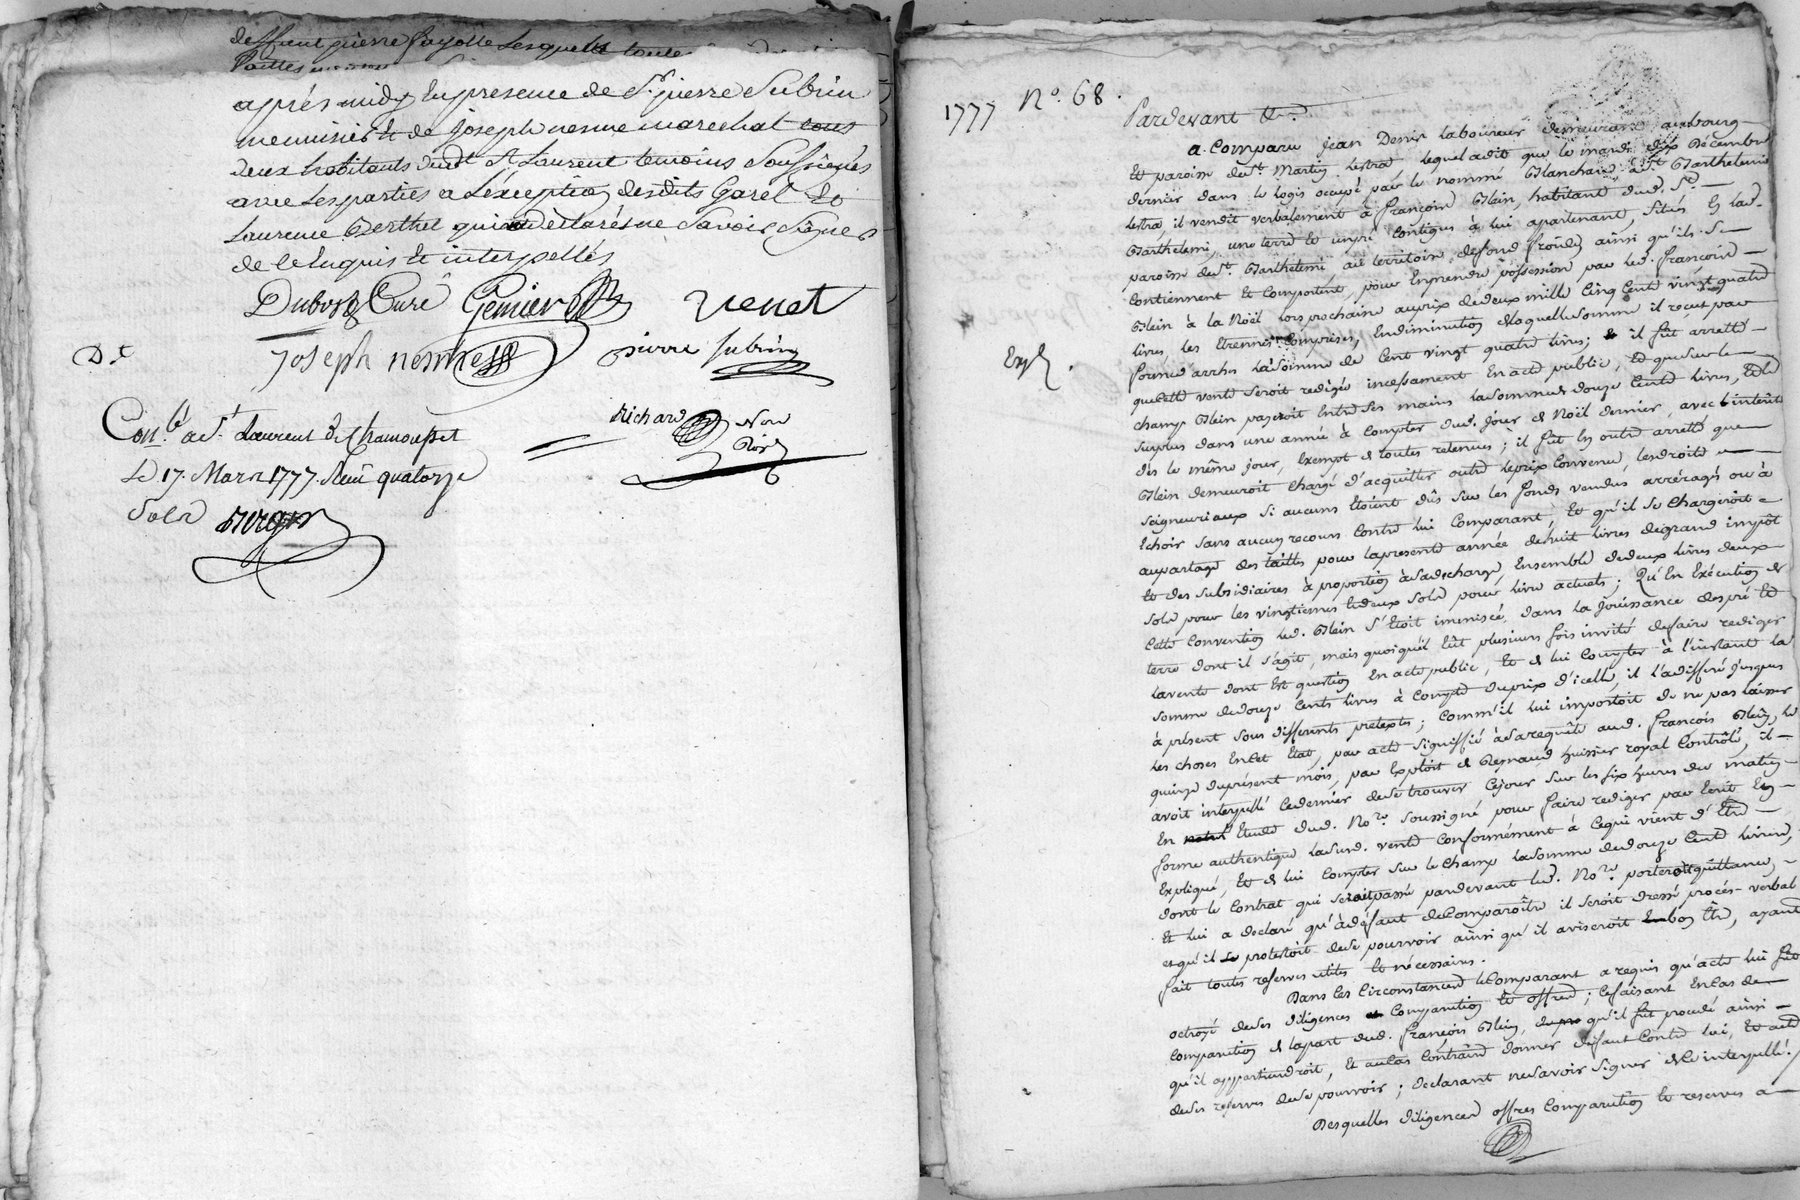 deffunt pierre fayolle lesquels toutes
parties
après midy En presence de Sr. pierre Subrin
menuisier Et de Joseph nesme marechal tous
deux habitants dudt St Laurent temoins Soussignés
avec les parties a L'exception desdits Garel Et
Laurence Berthet qui ont declarés ne Savoir Signer
de ce Enquis Et interpellés
Dubost Curé Genier Venet
D.t
Joseph nesme pierre subrin
Con.lé a St. Laurent de Chamousset
Le 17. Mars 1777. Reçu quatorze
Sols
Richard Nore
Roy
1777 No. 68.
Pardevant &c.
a Comparu Jean Denis laboureur demeurant au bourg
Et paroisse de St. Martin Lestra lequel a dit que le mardi dix Décembre
dernier dans le logis occupé par le nommé Blanchard, a St Barthelemi
lestra, il vendit verbalement à françois Blein, habitant dud. St.
Barthelemi, une terre Et un pré contigus à lui apartenant, situés En lad.
paroisse de St. Barthelemi, au territoire de fond froide, ainsi qu'ils se
Contiennent Et Comportent, pour En prendre possession par led. françois
Blein à la Noël lors prochaine au prix de deux mille Cinq Cent vingt quatre
livres, les Etrennes Comprises, En diminution de laquelle somme il reçut par
Exp.
forme d'arrhes la Somme de Cent vingt quatre livres; il fût arretté
que cette vente seroit redigée incessament En acte public, Et que sur le
champ Blein payeroit Entre ses mains la somme de douze Cents livres, Et le
surplus dans une année à Compter dud. jour de Noël dernier, avec l'interêt
dès le même jour, Exempt de toutes retenues; il fût En outre arretté que
Blein demeuroit chargé d'acquitter outre le prix Convenu, les droits
seigneuriaux si aucuns Etoient dûs sur les fonds vendus arréragés ou à
Echoir sans aucun recours Contre lui Comparant, Et qu'il se Chargeroit
au partage des tailles pour la presente année de huit livres de grand impôt
Et des subsidiaires à proportion à sa decharge, Ensemble de deux livres deux
sols pour les vingtiemes Et deux sols pour livre actuels; Qu'En Exécution de
Cette Convention led. Blein s'Etoit immiscé dans la Jouissance des pré Et
terre dont il s'agit, mais quoiqu'il Eût plusieurs fois invité de faire rediger
la vente dont Est question En acte public, Et de lui Compter à l'instant la
somme de douze Cents livres à Compte du prix d'icelle, il l'a differé jusques
à présent sous differents pretextes; Comm'il lui importoit de ne pas laisser
les choses En Cet Etat, par acte signiffié à sa requête aud. François Blein, le
quinze du présent mois, par Exploit de Reynaud huissier royal Contrôlé, il
avoit interpellé Ce dernier de se trouver Cejour sur les six heures du matin
En Etude dud. Nore. soussigné pour faire rediger par Ecrit En
forme authentique la susd. vente conformément à Ce qui vient d'Etre
Expliqué, Et de lui Compter sur le Champ la somme de douze Cents livres,
dont le Contrat qui seroit passé pardevant led. Nore. porteroit quittance,
Et lui a declaré qu'à défaut de Comparoître il seroit dressé procès-verbal
et qu'il protestoit de se pourvoir ainsi qu'il aviseroit bon Etre, ayant
fait toutes reserves utiles Et nécessaires.
Dans Ces Circonstances le Comparant a requis qu'acte lui fût
octroyé de ses diligences Comparution Et offres; Ce faisant En Cas de
Comparution de la part dud. françois Blein, qu'il fût procedé ainsi
qu'il appartiendroit, Et au Cas Contraire donner défaut Contre lui, Et acte
de ses reserves de se pourvoir; declarant ne savoir signer de Ce interpellé.
Desquelles diligences offres Comparution Et reserves a